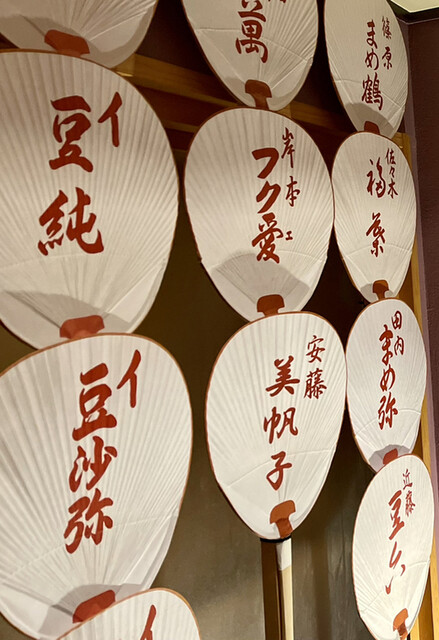 萬
篠原
まめ鶴
イ
豆純
岸本
フク愛
ェ
佐々木
福葉
イ
豆沙弥
安藤
美帆子
田内
まめ弥
近藤
豆六
イ